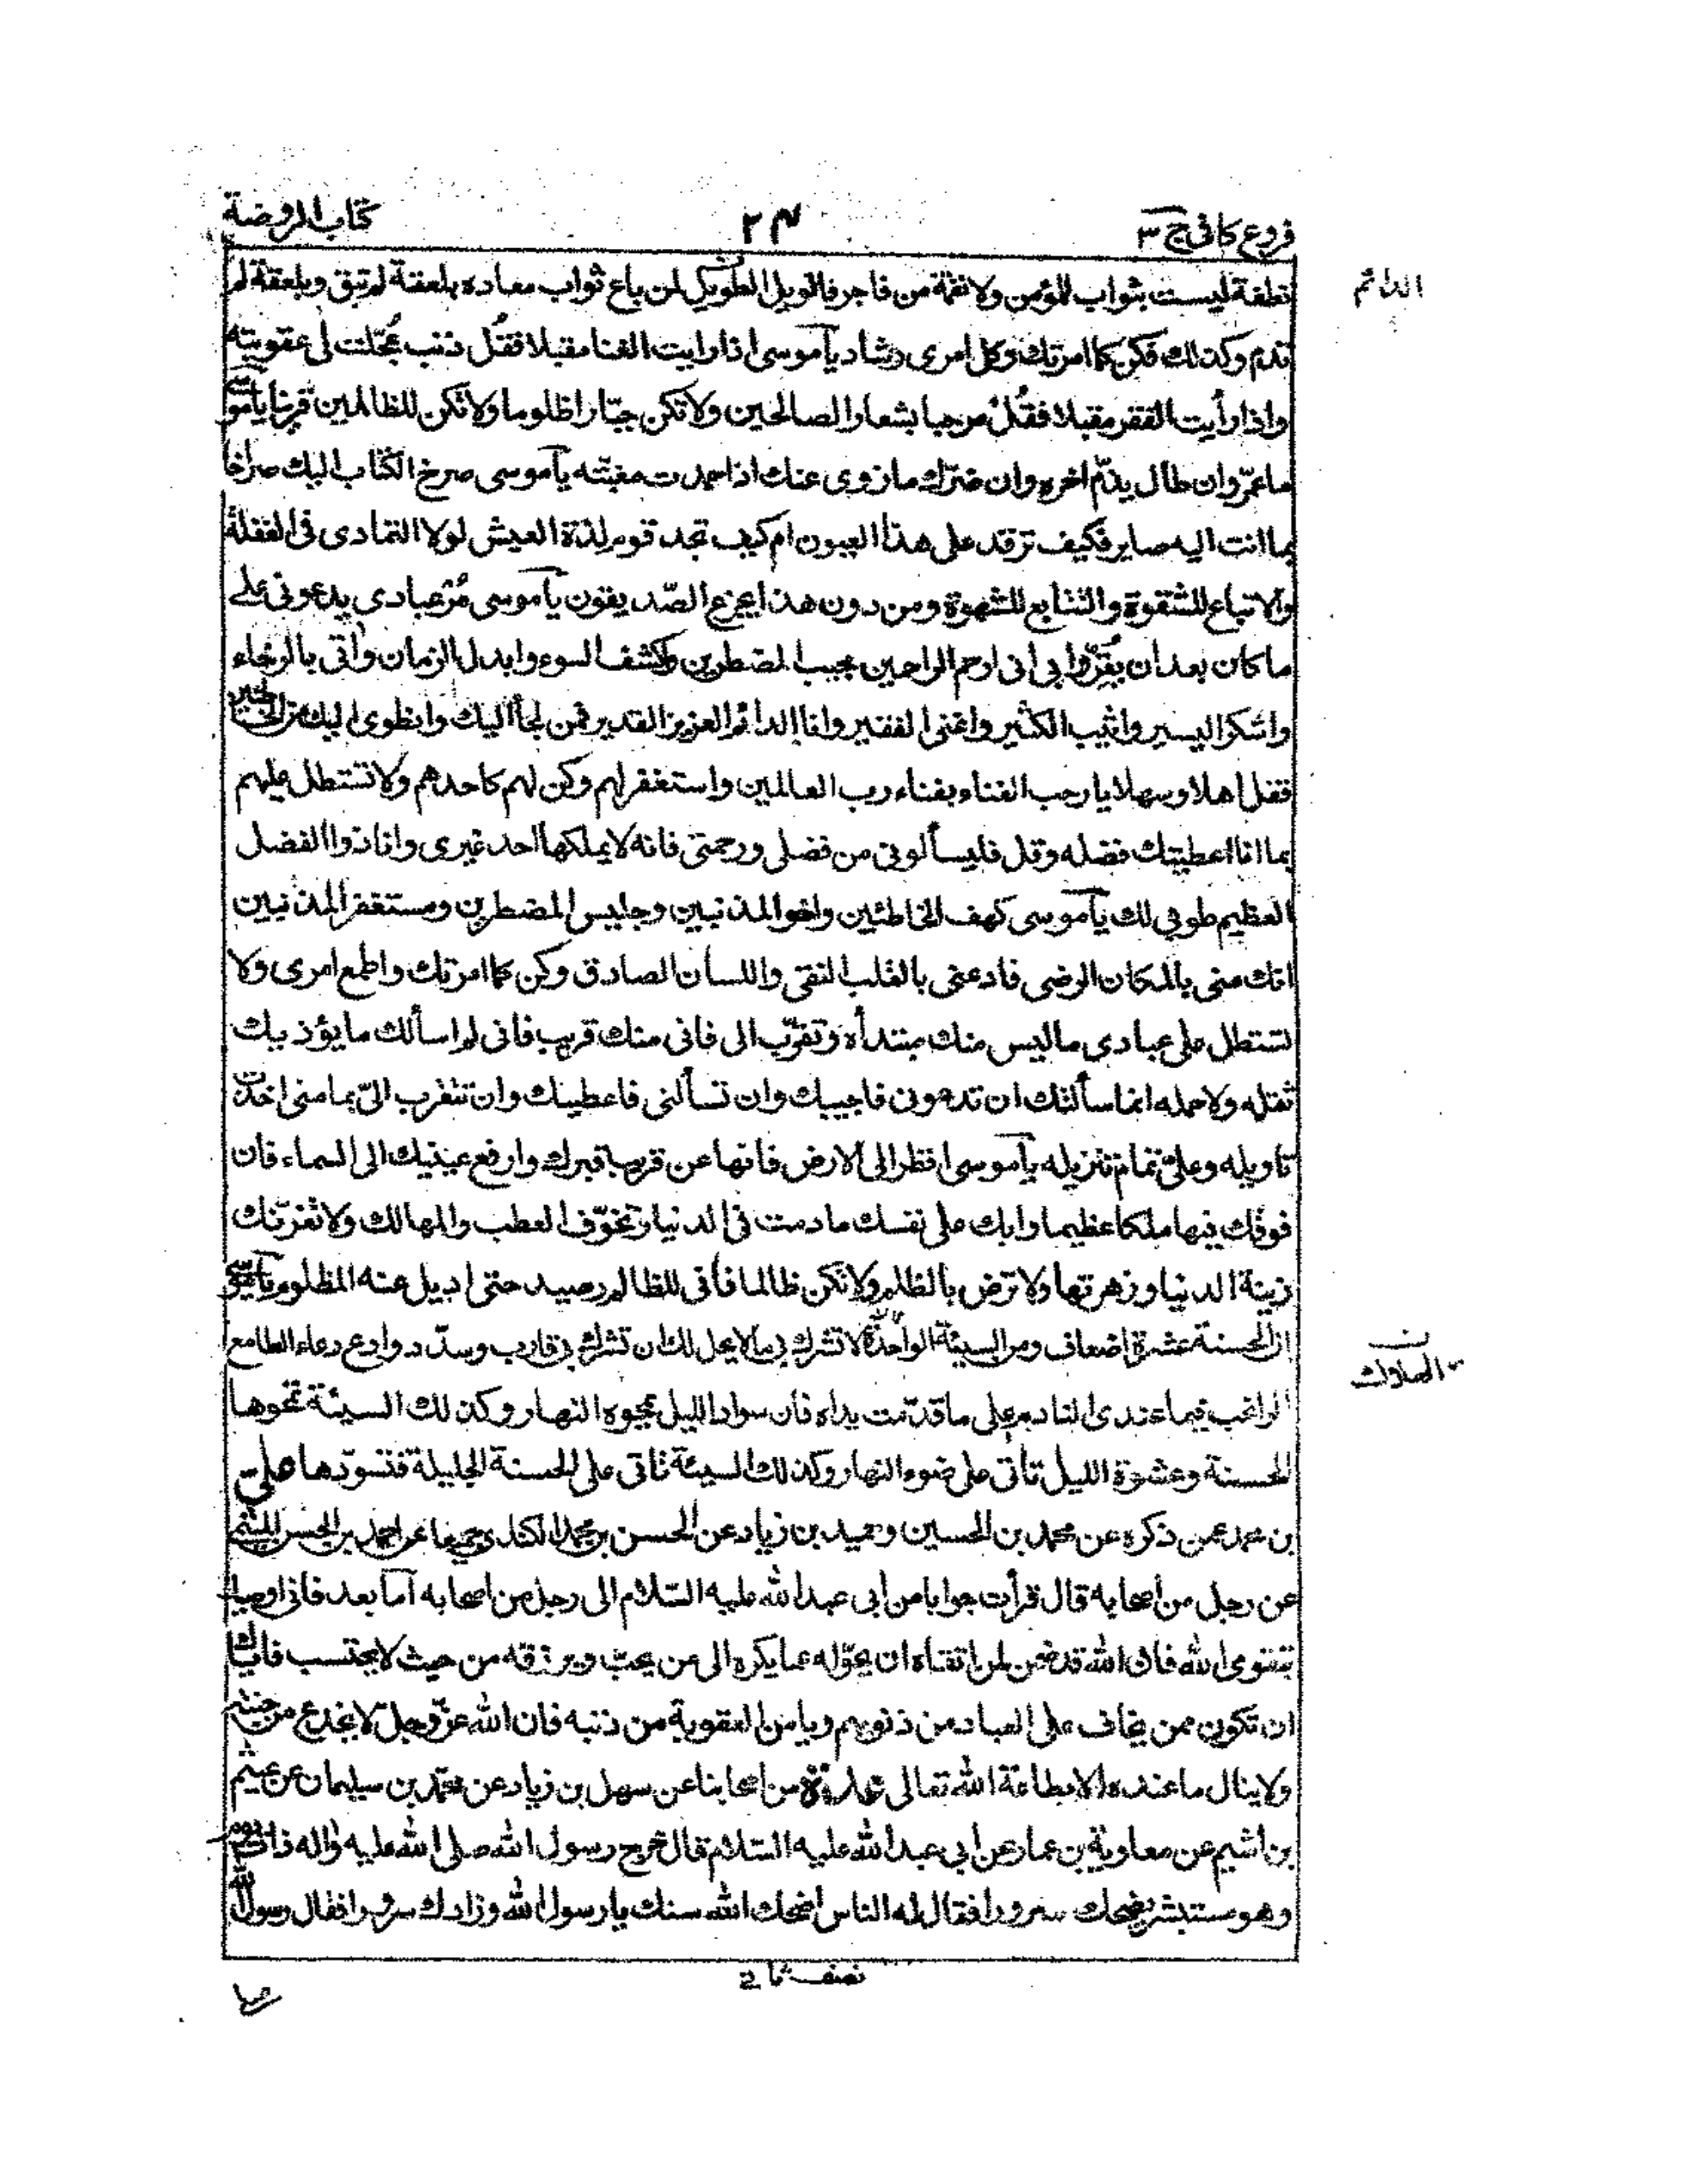 فروع كافى ج ٣
٢٤
كتاب الروضة
نطفة ليست بثواب للمؤمن ولا نقمة من فاجر فالويل الطويل لمن باع ثواب معاده بلعقة لم تبق وبلعقة لم
الدائم
تدم وكذلك فكن كما امرتك وكل امرى رشاد يا موسى اذا رايت الغنا مقبلا فقل ذنب عجّلت لى عقوبته
واذا رأيت الفقر مقبلا فقل مرحبا بشعار الصالحين ولا تكن جبّارا ظلوما ولا تكن للظالمين قرينا يا موسى
ما عمر وان طال يذمّ اخره وان ضرّك ما زوى عنك اذا حمدت مغبّته يا موسى صرخ الكتاب اليك صراخا
بما انت اليه صاير فكيف ترقد على هذا العيون ام كيف تجد قوم لذة العيش لولا التمادى فى الغفلة
والاتباع للشقوة والتتابع للشهوة ومن دون هذا يجزع الصّديقون يا موسى مُر عبادى يدعونى على
ما كان بعد ان يقرّوا بى انى ارحم الراحمين مجيب المضطرين واكشف السوء وابدل الزمان واتى بالرخاء
واشكر اليسير واثيب الكثير واغنى الفقير وانا الدائم العزيز القدير فمن لجأ اليك وانطوى اليك من الخاطئين
فقل اهلا وسهلا يا رحب الفناء بفناء رب العالمين واستغفر لهم وكن لهم كاحدهم ولا تستطل عليهم
بما انا اعطيتك فضله وقل فليسألونى من فضلى ورحمتى فانه لا يملكها احد غيرى وانا ذوا الفضل
العظيم طوبى لك يا موسى كهف الخاطئين واخو المذنبين وجليس المضطرين ومستغفر المذنبين
انك منى بالمكان الرضى فادعنى بالقلب النقى واللسان الصادق وكن كما امرتك واطع امرى ولا
تستطل على عبادى ما ليس منك مبتدأه وتقرّب الى فانى منك قريب فانى لم اسألك ما يؤذيك
ثقله ولا حمله انما سألتك ان تدعونى فاجيبك وان تسألنى فاعطيك وان تتقرب الىّ بما منى اخذت
تاويله وعلىّ تمام تنزيله يا موسى انظر الى الارض فانها عن قريب قبرك وارفع عينيك الى السماء فان
فوقك فيها ملكا عظيما وابك على نفسك ما دمت فى الدنيا وتخوّف العطب والمهالك ولا تغرّنك
زينة الدنيا وزهرتها ولا ترض بالظلم ولا تكن ظالما فانى للظالم رصيد حتى اديل عنه المظلوم يا موسى
ان الحسنة عشرة اضعاف ومن السيئة الواحدة لا تشرك بى لا يحل لك ان تشرك بى قارب وسدّد وادع دعاء الطامع
ن
الهلاك
الراغب فيما عندى النادم على ما قدّمت يداه فان سواد الليل يمحوه النهار وكذلك السيئة تمحوها
الحسنة وعشوة الليل تأتى على ضوء النهار وكذلك السيئة تاتى على الحسنة الجليلة فتسوّدها علىّ
بن محمد عمن ذكره عن محمد بن الحسين وحميد بن زياد عن الحسن بن محمد الكندى جميعا عن احمد بن الحسن الميثمى
عن رجل من اصحابه قال قرأت جوابا من ابى عبد الله عليه السّلام الى رجل من اصحابه اما بعد فانى اوصيك
بتقوى الله فان الله قد ضمن لمن اتقاه ان يحوّله عما يكره الى عن يحبّ ويرزقه من حيث لا يحتسب فاياك
ان تكون ممن يخاف على العباد من ذنوبهم ويامن العقوبة من ذنبه فان الله عزّ وجلّ لا يخدع من جنته
ولا ينال ما عنده الا بطاعة الله تعالى عدة من اصحابنا عن سهل بن زياد عن محمد بن سليمان عن عيثم
بن اشيم عن معاوية بن عمار عن ابى عبد الله عليه السّلام قال خرج رسول الله صلى الله عليه واله ذات يوم
وهو مستبشر يضحك سرورا فقال له الناس اضحك الله سنك يا رسول الله وزادك سرورا فقال رسول الله
نصف ثا